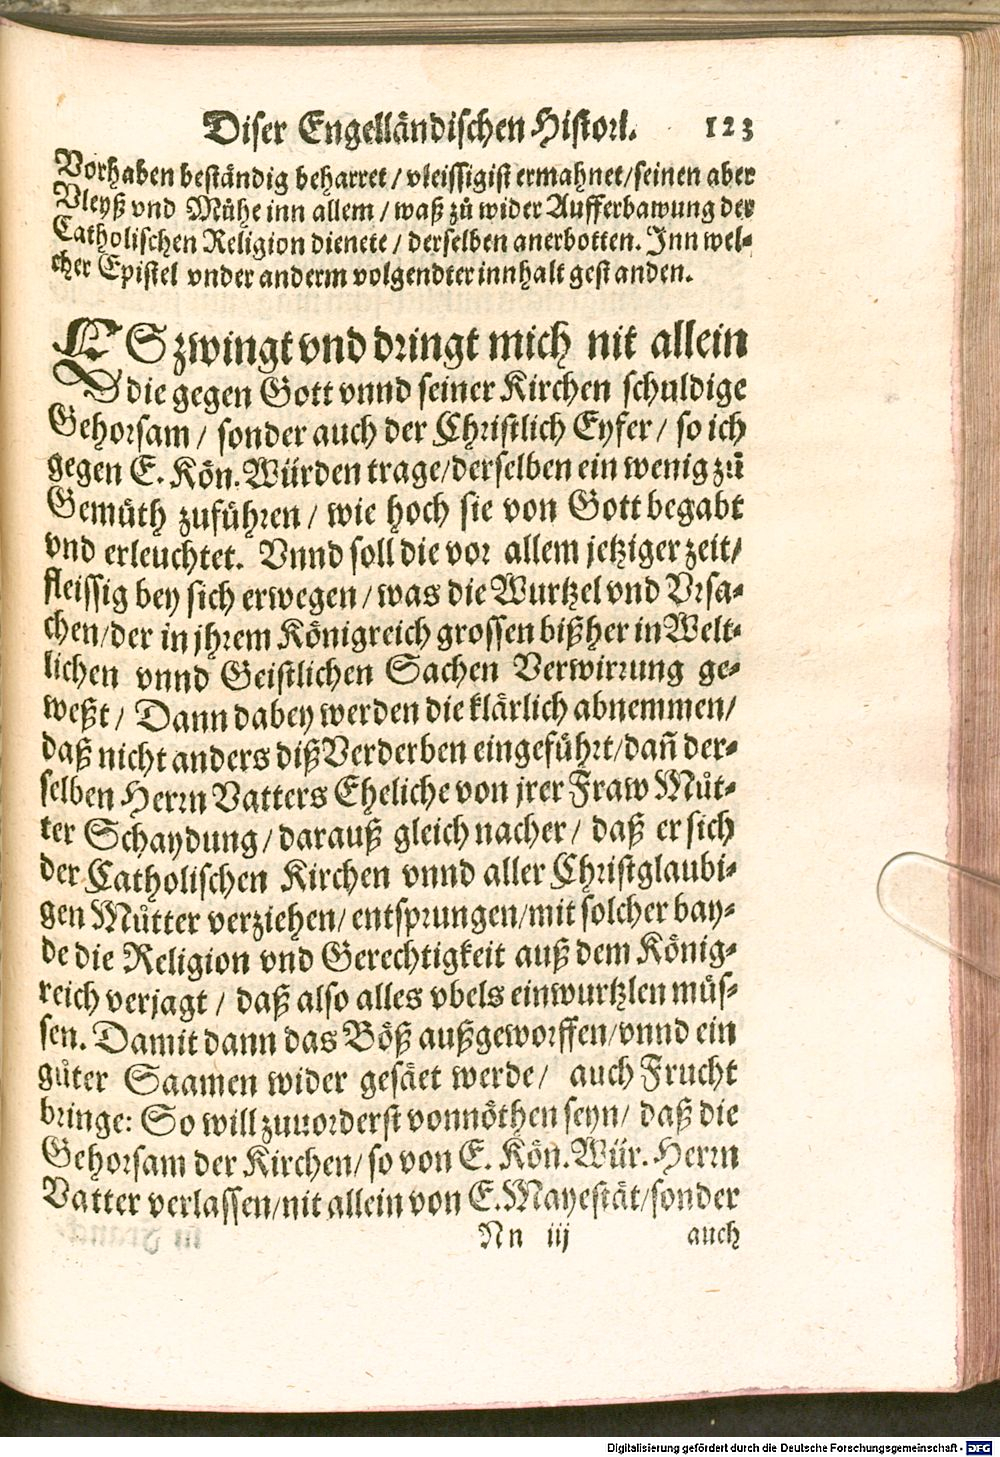 Diser Engelländischen Histori. 123
Vorhaben beständig beharret / vleissigist ermahnet / seinen aber
Vleyß vnd Mühe inn allem / waß zů wider Aufferbawung der
Catholischen Religion dienete / derselben anerbotten. Inn wel-
cher Epistel vnder anderm volgendter innhalt gestanden.
ES zwingt vnd dringt mich nit allein
die gegen Gott vnnd seiner Kirchen schuldige
Gehorsam / sonder auch der Christlich Eyfer / so ich
gegen E. Kön. Würden trage / derselben ein wenig zů
Gemüth zuführen / wie hoch sie von Gott begabt
vnd erleuchtet. Vnnd soll die vor allem jetziger zeit /
fleissig bey sich erwegen / was die Wurtzel vnd Vrsa-
chen / der in jhrem Königreich grossen bißher in Welt-
lichen vnnd Geistlichen Sachen Verwirrung ge-
weßt / Dann dabey werden die klärlich abnemmen /
daß nicht anders diß Verderben eingeführt / dañ der-
selben Herrn Vatters Eheliche von jrer Fraw Můt-
ter Schaydung / darauß gleich nacher / daß er sich
der Catholischen Kirchen vnnd aller Christglaubi-
gen Můtter verziehen / entsprungen / mit solcher bay-
de die Religion vnd Gerechtigkeit auß dem König-
reich verjagt / daß also alles vbels einwurtzlen müs-
sen. Damit dann das Böß außgeworffen / vnnd ein
gůter Saamen wider gesäet werde / auch Frucht
bringe: So will zuuorderst vonnöthen seyn / daß die
Gehorsam der Kirchen / so von E. Kön. Wür. Herrn
Vatter verlassen / nit allein von E. Mayestät / sonder
Nn iij auch
Digitalisierung gefördert durch die Deutsche Forschungsgemeinschaft - DFG